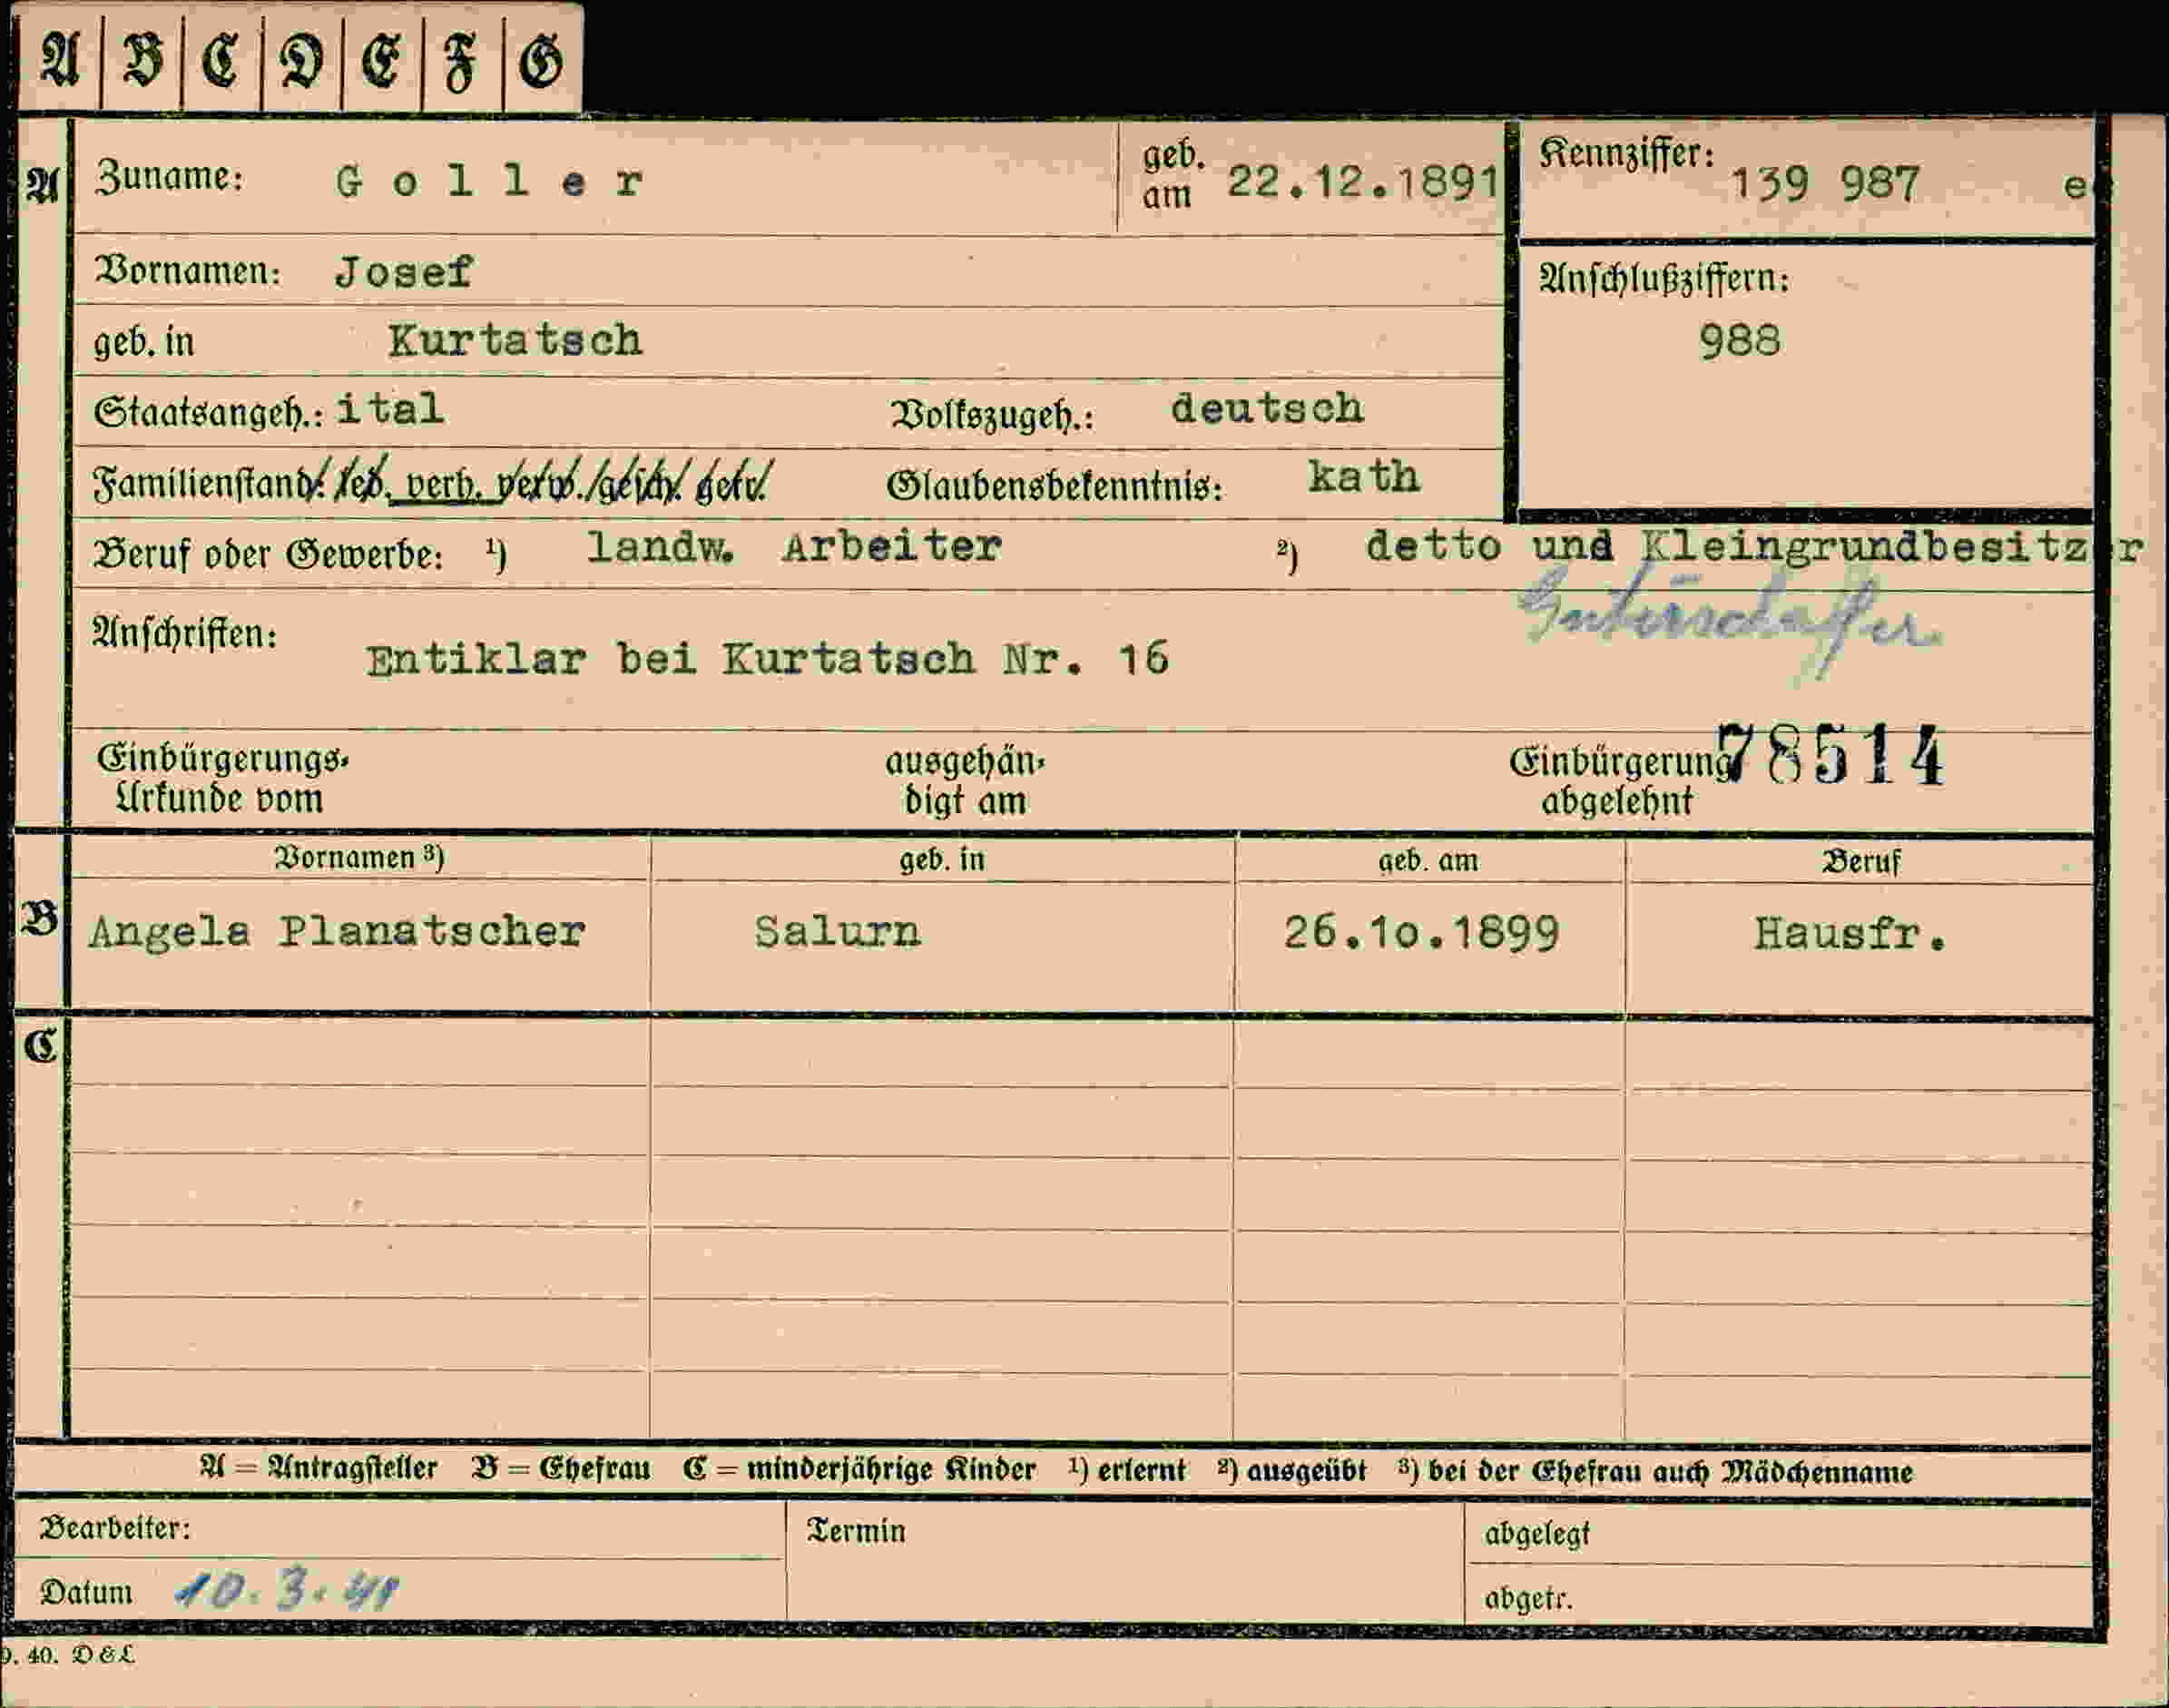 A B C D E F G
A Zuname: Goller geb. am 22.12.1891 Kennziffer: 139 987 e
Vornamen: Josef Anschlußziffern:
geb. in Kurtatsch 988
Staatsangeh.: ital Volkszugeh.: deutsch
Familienstand: led. verh. verw. gesch. getr. Glaubensbekenntnis: kath
Beruf oder Gewerbe: 1) landw. Arbeiter 2) detto und Kleingrundbesitzer
Güterschaffer
Anschriften: Entiklar bei Kurtatsch Nr. 16
Einbürgerungs- ausgehän- Einbürgerung 78514
Urkunde vom digt am abgelehnt
Vornamen 3) geb. in geb. am Beruf
B Angela Planatscher Salurn 26.10.1899 Hausfr.
C
A = Antragsteller B = Ehefrau C = minderjährige Kinder 1) erlernt 2) ausgeübt 3) bei der Ehefrau auch Mädchenname
Bearbeiter: Termin abgelegt
Datum 10.3.41 abgetr.
9. 40. D & L